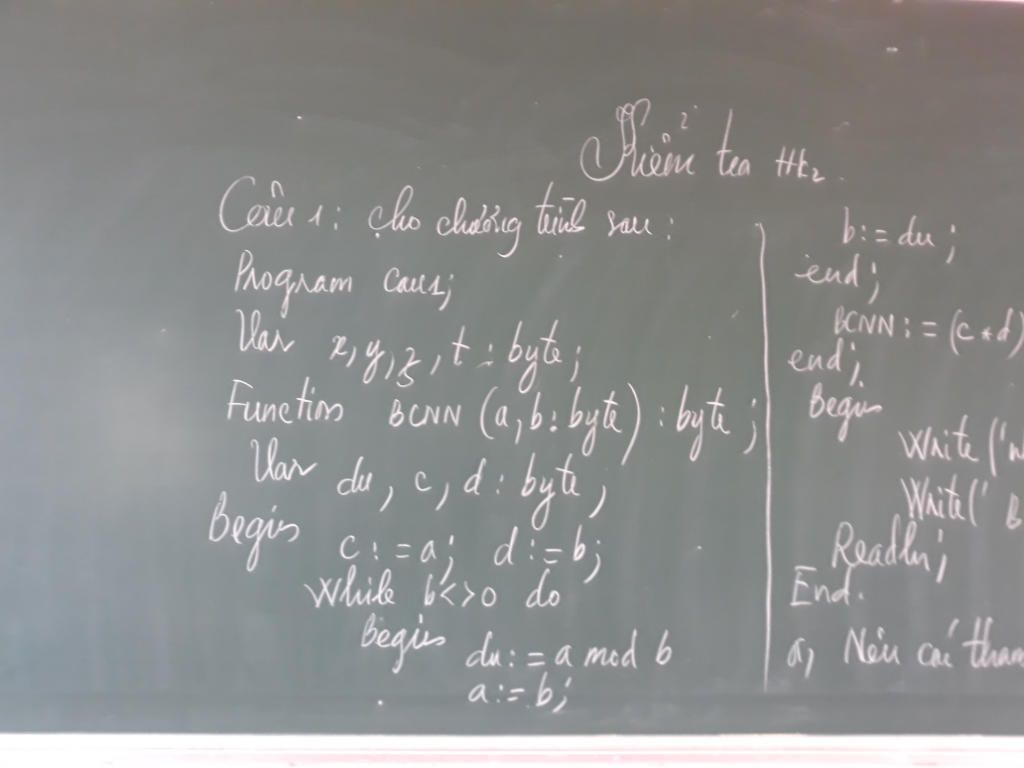 Kiểm tra HK2.
Câu 1: cho chương trình sau:
Program cau1;
Var x,y,z,t: byte;
Function BCNN (a,b: byte): byte;
Var du, c, d: byte;
Begin
c:=a; d:=b;
While b<>0 do
Begin du:=a mod b
a:=b;
b:=du;
end;
BCNN:=(c*d)
end;
Begin
Write('
Write('B
Readln;
End.
a, Nêu các tham